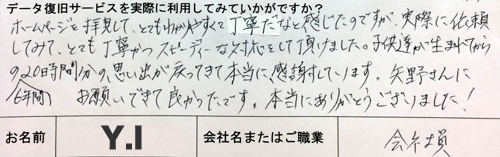 データ復旧サービスを実際に利用してみていかがですか？
ホームページを拝見して、とてもわかりやすくて丁寧だなと感じたのですが、実際に依頼
してみて、とても丁寧かつスピーディーな対応をして頂けました。子供達が生まれてから
の20時間分の思い出が戻ってきて本当に感謝しています。矢野さんに
6年間
お願いできて良かったです。本当にありがとうございました！
お名前 Y.I 会社名またはご職業 会社員